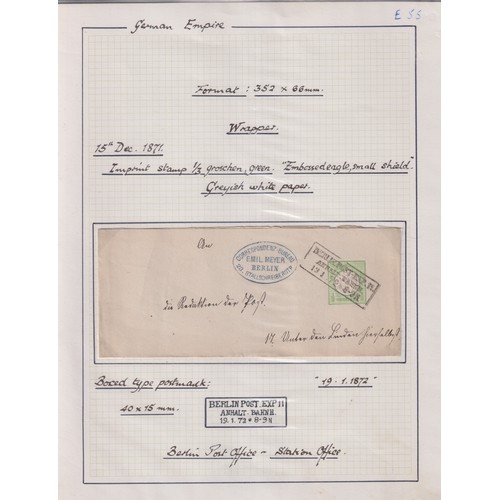 German Empire
E 55
Format : 352 x 66mm.
Wrapper.
15th Dec. 1871.
Imprint stamp 1/3 groschen, green. "Embossed eagle, small shield".
Greyish white paper.
An
CORRESPONDENZ-BUREAU
EMIL MEIER
BERLIN
BERLIN POST. EXP. 11.
ANHALT. BAHNH.
19 1 72 * 8-9 N
die Redaktion der Post.
12 Unter den Linden hierselbst
Boxed type postmark:
"19. 1. 1872"
40 x 15 mm.
BERLIN POST. EXP 11
ANHALT. BAHNH.
19. 1. 72 * 8-9 N
Berlin Post Office - Station Office.